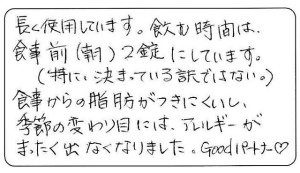 長く使用しています。飲む時間は、
食事前(朝)2錠にしています。
(特に、決まっている訳ではない。)
食事からの脂肪がつきにくいし、
季節の変わり目には、アレルギーが
まったく出なくなりました。Goodパートナー♡